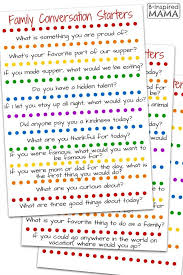 B-Inspired
MAMA
Family Conversation Starters
What is something you are proud of?
What's your favorite part of our supper?
If you made supper, what would we be eating?
Do you have a hidden talent?
If I let you stay up all night, what would you do?
Did anyone pay you a kindness today?
What are you thankful for today?
If you were famous, what would you want to be famous for?
If you were mom or dad for the day, what's the first thing you would do?
What are you curious about?
What are three good things about today?
What is your favorite thing to do as a family?
If you could go anywhere in the world on vacation, where would you go?